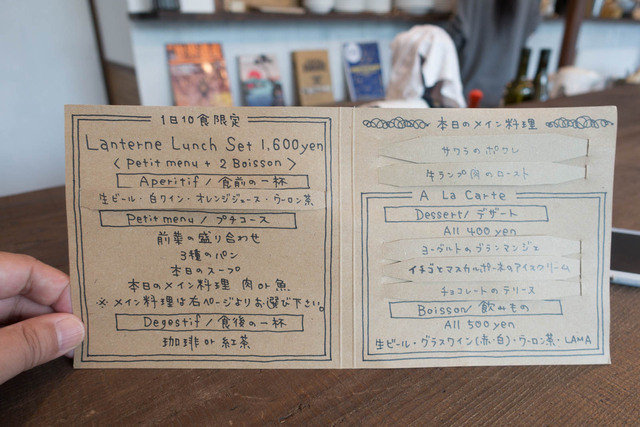 1日10食限定
Lanterne Lunch Set 1,600yen
< petit menu + 2 Boisson >
Aperitif / 食前の一杯
生ビール・白ワイン・オレンジジュース・ウーロン茶
Petit menu / プチコース
前菜の盛り合わせ
3種のパン
本日のスープ
本日のメイン料理 肉 or 魚
※メイン料理は右ページよりお選び下さい。
Degestif / 食後の一杯
珈琲 or 紅茶
本日のメイン料理
サワラのポワレ
牛ランプ肉のロースト
A La Carte
Dessert / デザート
All 400 yen
ヨーグルトのブランマンジェ
イチゴとマスカルポーネのアイスクリーム
チョコレートのテリーヌ
Boisson / 飲みもの
All 500 yen
生ビール・グラスワイン(赤・白)・ウーロン茶・LAMA